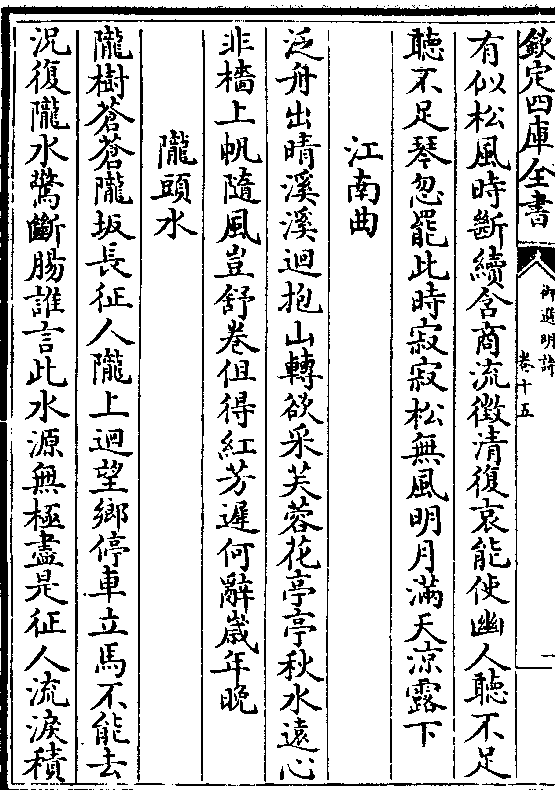 欽定四庫全書
御選明詩
卷十五
一
有似松風時斷續含商流徵清復哀能使幽人聽不足
聽不足琴忽罷此時寂寂松無風明月滿天涼露下
江南曲
泛舟出晴溪溪迴抱山轉欲采芙蓉花亭亭秋水遠心
非檣上帆隨風豈舒卷但得紅芳遲何辭歲年晚
隴頭水
隴樹蒼蒼隴坂長征人隴上迴望鄉停車立馬不能去
況復隴水驚斷腸誰言此水源無極盡是征人流淚積